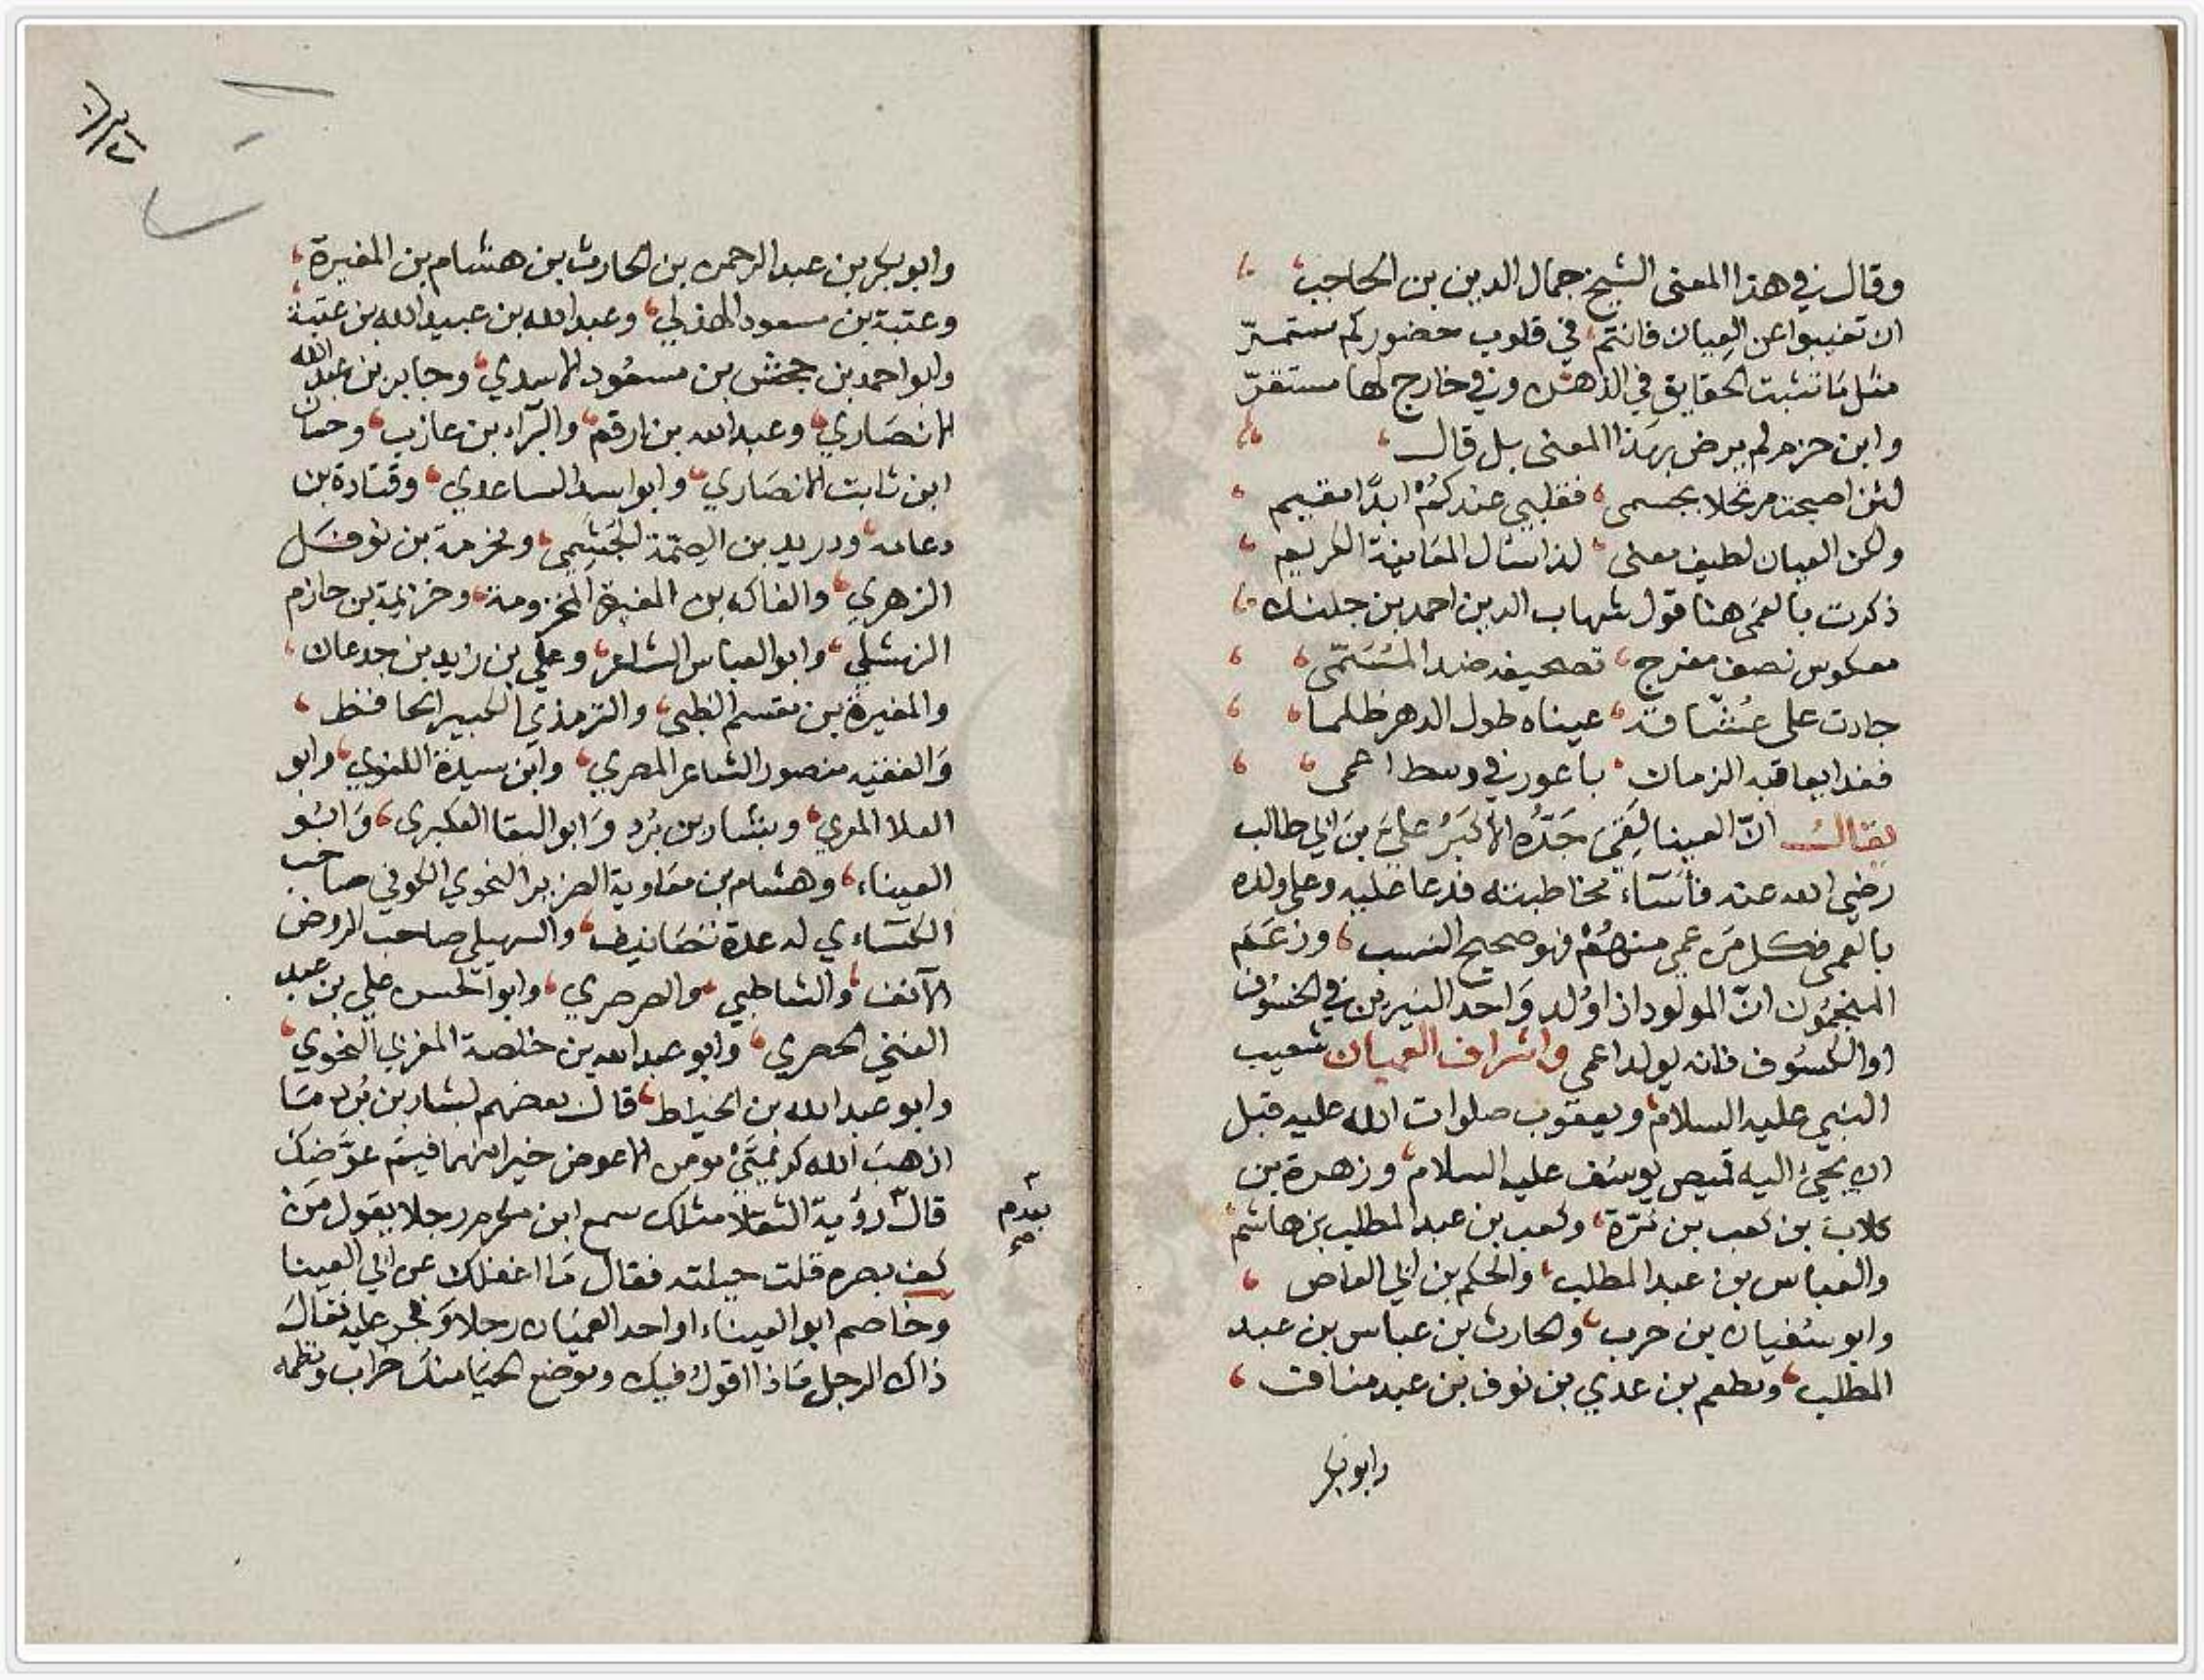 وقال في هذا المعنى الشيخ جمال الدين بن الحاجب
ان تغيبوا عن العيان فانتم في قلوب حضوركم مستمرّ
مثل ما تثبت الحقايق في الذهن وفي خارج لها مستقرّ
وابن حزم لم يرض بهذا المعنى بل قال
لئن اصبحت مرتحلا بجسمى فقلبي عندكم ابدًا مقيم
ولكن العيان لطيف معنى لذا سال المعاينة الكريم
ذكرت بالعمى هنا قول شهاب الدين احمد بن جلنك
معكوس نصف مفرج تصحيف ضد المُسَمّى
جادت على عُشّاقه عيناه طول الدهر ظلما
فغدا يعاقبه الزمان باعور في وسط اعمى
يقال انّ العينا لقى جَدّه الأكبرُ عليَّ بنَ ابي طالب
رضي الله عنه فأسَآء مخاطبته فدعا عليه وعلى ولده
بالعمى فكل مَن عمي منهُمْ فهو صحيح النسب وزعَمَ
المنجمُون انّ المولود اذا وُلد وَاحد النيرين في الخسُوف
او الكسُوف فانه يولد اعمي واشراف العميان شعيب
النبي عليه السلام ويعقوب صلوات الله عليه قبل
ان يجئ اليه قميص يوسُف عليه السلام وزهرة بن
كلاب بن كعب بن مُرّة وكعب بن عبد المطلب بن هاشم
والعباس بن عبد المطلب والحكم بن ابي العاص
وابو سُفيان بن حرب والحارث بن عباس بن عبد
المطلب ومطعم بن عدي بن نوف بن عبد مناف
وابو بكر
وابو بكر بن عبد الرحمن بن الحارث بن هشام بن المغيرة
وعتبة بن مسعود الهذلي وعبد الله بن عبيد الله بن عتبة
وابو احمد بن جحش بن مسعُود الاسدي وجابر بن عبد الله
الانصَاري وعبد الله بن ارقم والبرآء بن عازب وحسان
ابن ثابت الانصَاري وابو اسيد الساعدي وقتادة بن
دعامه ودريد بن الصِمّة الجُشَمِي ومخرمة بن نوفَل
الزهري والفاكه بن المغيرة المخزومة وخزيمة بن حازم
النهشلي وابو العباس الشاعر وعلي بن زيد بن جدعان
والمغيرة بن مقسم الظبي والترمذي الكبير الحافظ
وَالفقيه منصور الشاعر المصري وابن سيدة اللغوي وابو
العلا المعري وبشار بن بُرد وَابو البقا العكبرى وَابُو
العيناء وهشام بن معَاوية الضرير النحوي الكوفي صاحب
الكسَاءي له عدة تصَانيف والسهيلي صاحب الروض
الآنف والشاطبي والصرصري وابو الحسن علي بن عبد
الغني الحصري وابو عبد الله بن خلصة المغربي النحوي
وابو عبد الله بن الخياط قال بعضهم لبشار بن بُرد مَا
اذهبَ الله كريمَتَيْ مومن الا عوض خيرا منهما فبمَ عوَّضكَ
قالَ رؤية الثقلا مثلك سمع ابن مكرم رجلا يقول مَنْ
كف بصره قلت حيلته فقال مَا اغفلك عن ابي العينا
وخاصم ابو العيناء او احد العميَان رجلا وَفجر عليه فقالَ
ذاك الرجل مَاذا اقول فيك وموضع الحيَا منكَ خراب ونظمه